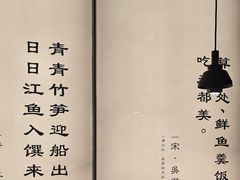 处、鲜鱼羹饭
吃
都美。
—宋·吴
青青竹笋迎船出
日日江鱼入馔来